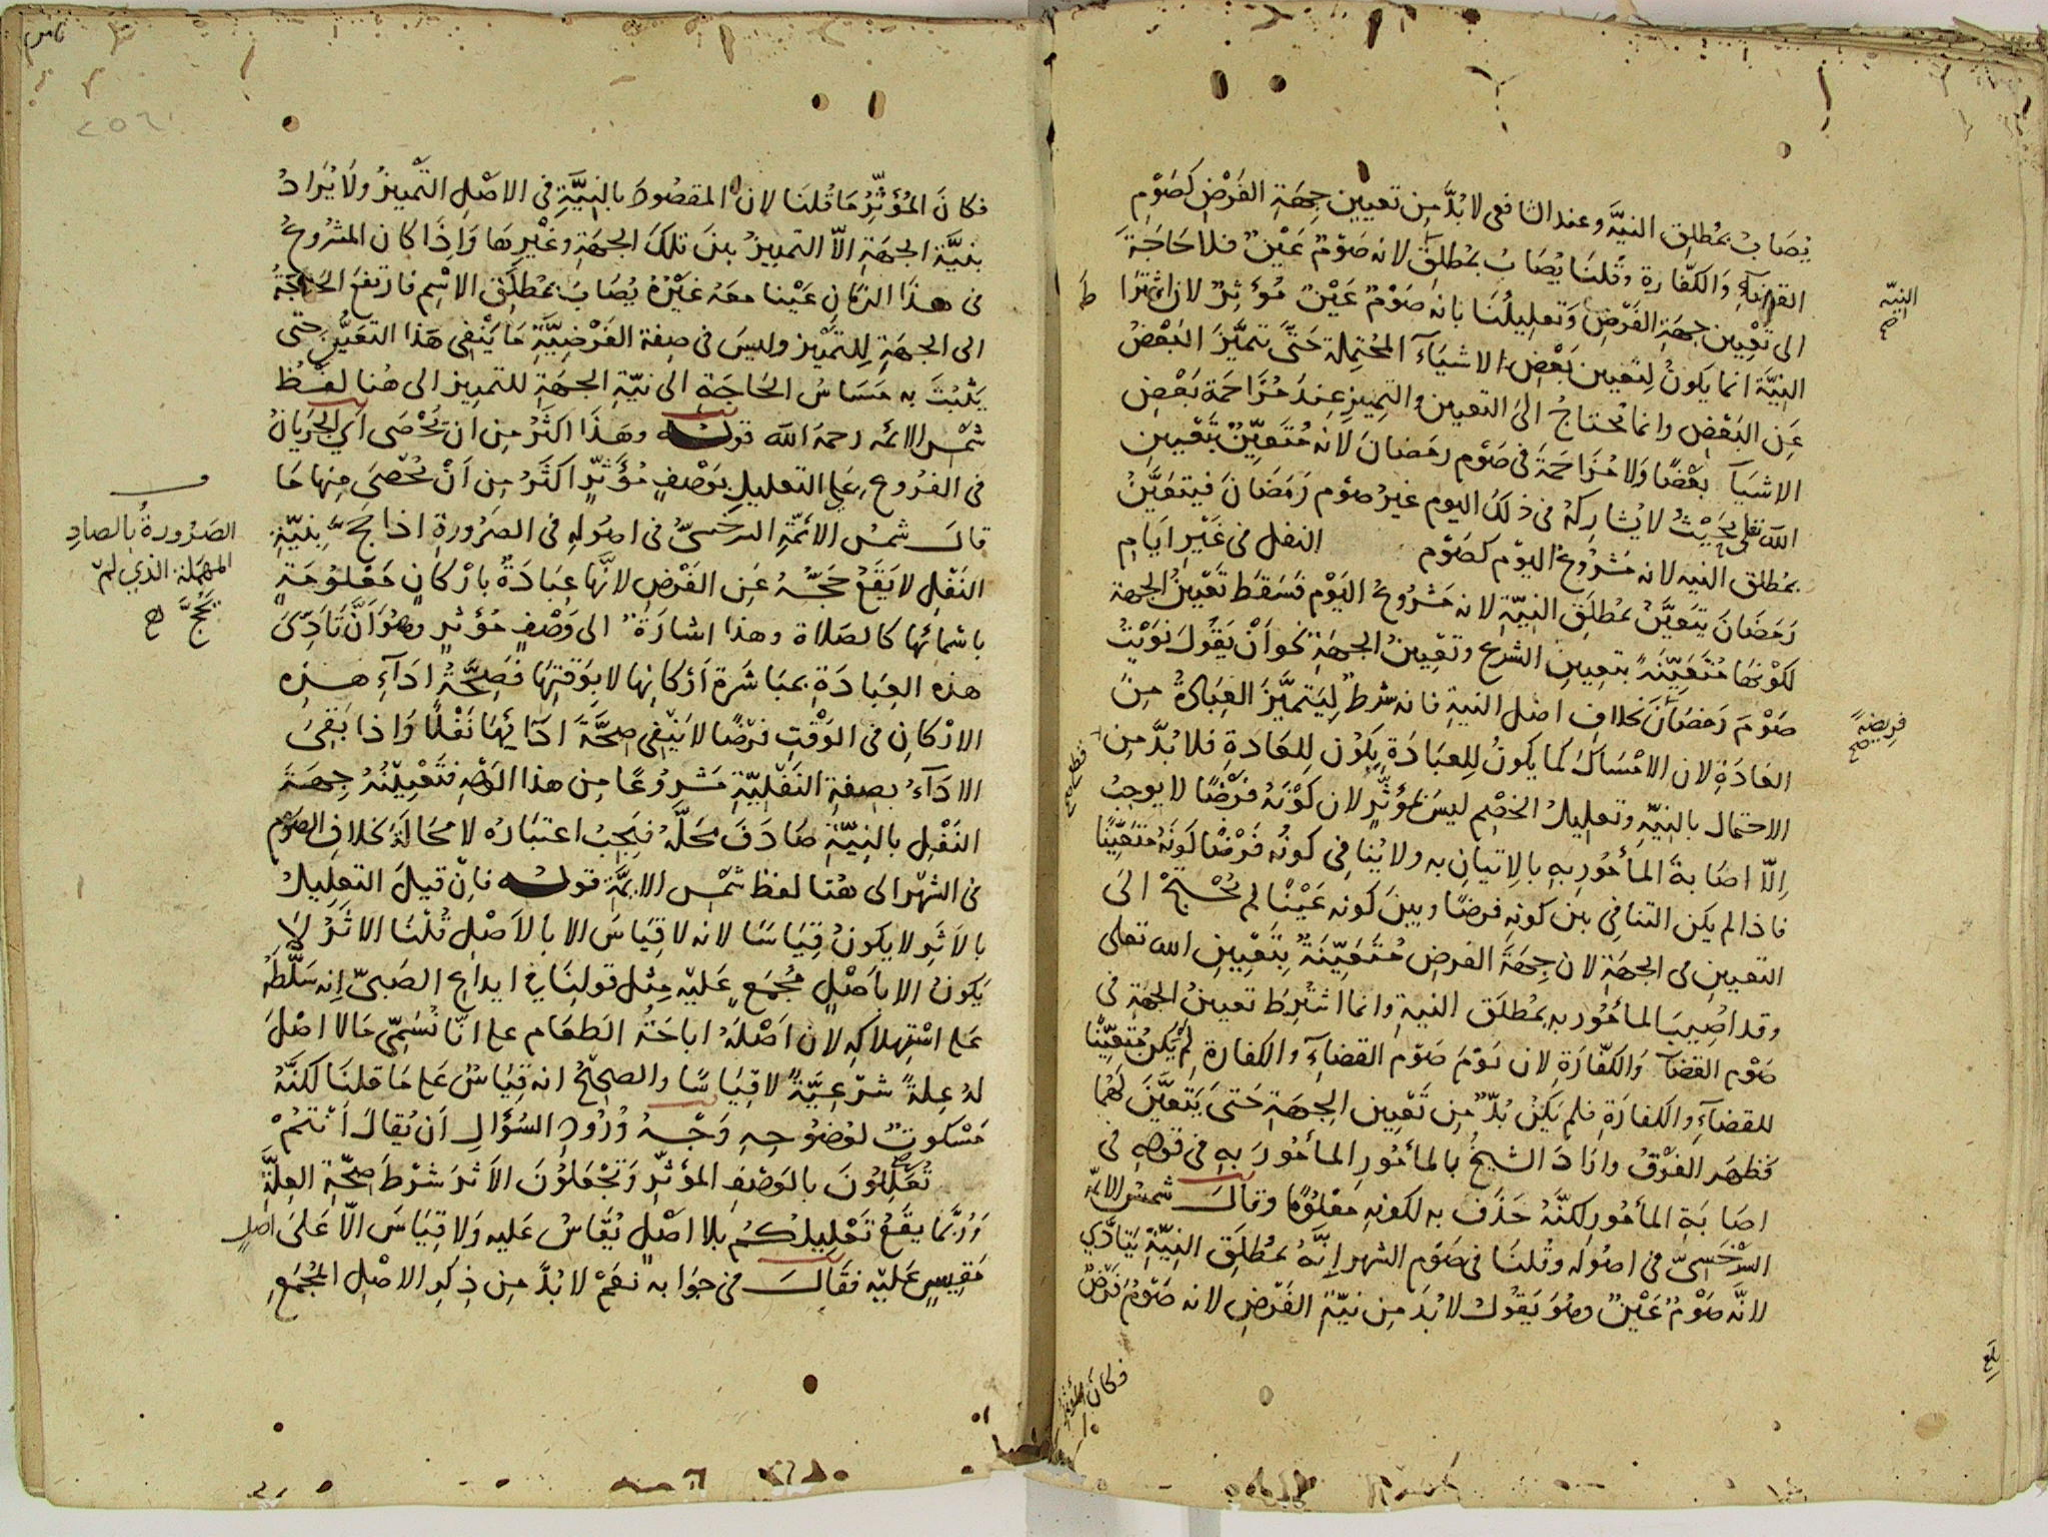 يُصَابُ بمُطلِق النيَّة وعند الشافعى لابُدَّ مِن تعيين جِهَةِ الفَرْضِ كصَوْمِ
القضآءِ وَالكفّارة وقُلنَا يُصَابُ بمُطلقٍ لانه صَوْمٌ عَيْنٌ فلا حَاجَةَ
الى تَعْيِين جهَةِ الفَرْضِ وَتعلِيلُنَا بانه صَوْمٌ عَيْنٌ مُؤثِرٌ لان اشترا
ط النِيَّة انما يَكونُ لِتَعيين بَعْضِ الاشيَآءِ المُحتِملة حَتَّى تتميَّز البَعْضُ
عَنِ البَعْضِ وانما يُحتاجُ الى التعيين والتمِييزِ عِندَ مُزَاحَمَة بَعْضِ
الاشيَآءِ بَعْضًا وَلا مُزَاحَمةَ فى صَوْم رمَضانَ لانه مُتَعَيِّنٌ بتَعْيين
الله تعلى بحَيْثُ لا يُشارِكهُ فى ذلكَ اليوم غيرُ صَوْم رَمَضَانَ فيتعَيَّنُ
بمُطلق النيه لانه مَشْرُوعُ اليَوْم كصَوْم النفل فى غَيْرِ ايَامِ
رَمَضَانَ يتعَيَّنُ بمُطلِق النِيَّةِ لانه مَشْرُوعُ اليَوْم فسَقَطَ تَعْيِينُ الجهة
لكَوْنهَا مُتَعَيِّنَةً بتعيين الشرع وتعْيِينُ الجهَةِ نحو اَنْ يَقُولَ نَوَيْتُ
صَوْمَ رَمَضَانَ بخلافِ اصل النيةِ فانه شرطٌ لِيَتميَّزَ العِبَادةُ مِنَ
العَادَةِ لان الامْسَاكَ كما يكونُ لِلعبَادَةِ يكوْن لِلعَادَةِ فلابُدَّ مِن قطع
الاحتمال بالنيّة وتعليلُ الخصْم ليسَ بمؤثّرٍ لان كوْنَهُ فَرْضًا لا يوجِبُ
اِلّا اصَابةَ المأمُورِ بهِ بالاِتيانِ به ولا يُنافِى كونُه فَرْضًا كونَهُ متعَيِّنًا
فاذا لم يكن التنافى بين كونِه فرضًا وبينَ كونِه عَيْنًا لم يُحْتَجْ الى
التعيين فى الجهَةِ لان جِهَةَ الفرضِ مُتَعَيِّنَةٌ بتَعْيينِ الله تعلى
وقد اصُيبَ المأمُور به بمُطلَق النيةِ وانما اشتُرِطَ تعيينُ الجهَةِ فى
صَوْم القضآءِ وَالكفّارَةِ لان يَوْمَ صَوْم القضآءِ والكفارة لم يَكُن مُتعَيِّنًا
للقضآءِ والكفارَةِ فلم يَكنْ بُدٌّ مِن تَعْيين الجِهَةِ حَتى يَتَعَيَّنَ لَهُما
فظهَر الفَرْقُ وارَادَ الشيخُ بالمأمُورِ المأمُورَ بهِ فى قوله فى
اصَابَةِ المأمُورِ لكنَّهُ حَذَف به لكونهِ مَعْلُومًا وقالَ شمسُ الائمّة
السَّرْخَسِىُّ فى اصُولِه وقُلنَا فى صَوْم الشهر اِنَّهُ بمُطلَق النِيَّةِ يَتَأدَّى
لانَّه صَوْمٌ عَيْنٌ وهُوَ يَقُولُ لابُدَ مِن نيّةِ الفَرْضِ لانه صَوْمُ فَرْضٍ
النيّة
صح
فريضةً
صح
بلغ
فكانَ المؤثرُ
فكانَ المُؤثّرُ مَا قُلنَا لانّ المقصُودَ بالنِيَّةِ فى الاصْلِ التَّمييزُ ولا يُرَادُ
بنيَّةِ الجهَةِ الاّ التمييزُ بينَ تلكَ الجهَةِ وغيْرِهَا وَاِذَا كان المشرُوعُ
فى هذا الزمَانِ عَيْنا معَهُ غَيْرُهُ يُصَابُ بمُطلَقِ الاسْمِ فارتفعَ الحَاجَةُ
الى الجهَةِ لِلتميِيز وليسَ فى صِفة الفَرْضِيَّةِ مَا يَنْفى هَذا التعَيُّنَ حتى
يَثبُتَ به مَسَاسُ الحَاجَةِ الى نيّةِ الجهَةِ للتمييز الى هُنا لفظُ
شمْسِ الائمه رحمهُ الله قوله وهَذا اكثَرُ مِن ان تحْصَى اَي الجَرَيَانُ
فى الفرُوعِ عَلى التعليلِ بوَصْفٍ مُؤثّرٍ اكثَرُ مِن اَنْ يُحْصَى مِنها مَا
قالَ شمسُ الائمَّةِ السرخَسىُّ فى اصُولِه فى الصَرُورةِ اذا حَجَّ بنيّةِ
النَفْلِ لا يَقعُ حَجَّهُ عَنِ الفَرْضِ لانَّها عِبَادَةٌ باَرْكانٍ مَعْلُومَةٍ
باسمائهَا كالصَلاة وهذا اشارَةٌ الى وَصْفٍ مُؤثرٍ وهُوَ اَنَّ تَادِّىَ
هذه العِبَادَةِ بمبَاشَرة اَرْكانِها لا بوَقتِهَا فَصِحَّةُ ادَآءِ هذهِ
الارْكانِ فى الوَقْتِ فَرْضًا لا يَنْفِى صِحَّةَ ادَآئِهَا نَفْلًا وَاذا بَقِىَ
الادَآءُ بصِفةِ النَفْلِيّةِ مَشرُوعًا مِن هذا الوَجْهِ فتَعْيِيْنُهُ جِهَةَ
النَفْلِ بالنِيّةِ صَادَفَ مَحَلَّهُ فيَجِبُ اعتبَارُه لا مَحَالَةَ بخلافِ الصَوْم
فى الشهْر الى هُنا لفظ شمْسِ الائمَّةِ قوله فاِن قيلَ التعليلُ
بالاَثرِ لا يكونُ قِيَاسًا لانه لا قِيَاسَ الا بالاَصْلِ قُلْنا الاثَرُ لا
يَكونُ الا باَصْلٍ مُجْمَعٍ عَليْه مِثل قولِنَا فى ايداعِ الصَبىِّ اِنه سَلَّطَهُ
عَلى اسْتِهلاكِه لان اَصْلَهُ اباحَةُ الطعَام على انّا نُسَمِّى مَا لا اصْلَ
لهُ عِلةً شرْعِيَّةً لا قِيَاسًا والصحِيْحُ انه قِيَاسٌ عَلى مَا قلنَا لكنَّهُ
مَسْكوتٌ لوُضوُحِهِ وَجْهُ وُرُودِ السُؤَالِ اَن يُقالَ اَنتمْ
تُعَلِّلُونَ بالوَصْفِ المؤثّرِ وَتجْعَلوُنَ الاَثرَ شَرْطَ صِحّةِ العِلَّةِ
وَرُبَّمَا يقَعُ تَعْلِيلُكُم بلا اصْلٍ يُقَاسُ عَليه وَلا قِيَاسَ الاّ عَلىَ اصلٍ
مَقِيسٍ عَليْه فقَالَ فى جوَابه نعَمْ لابُدَّ مِن ذِكرِ الاصْلِ المُجْمَعِ
الصَرُورةُ بالصادِ
المهمَلة الذي لم
يَحُجَّ